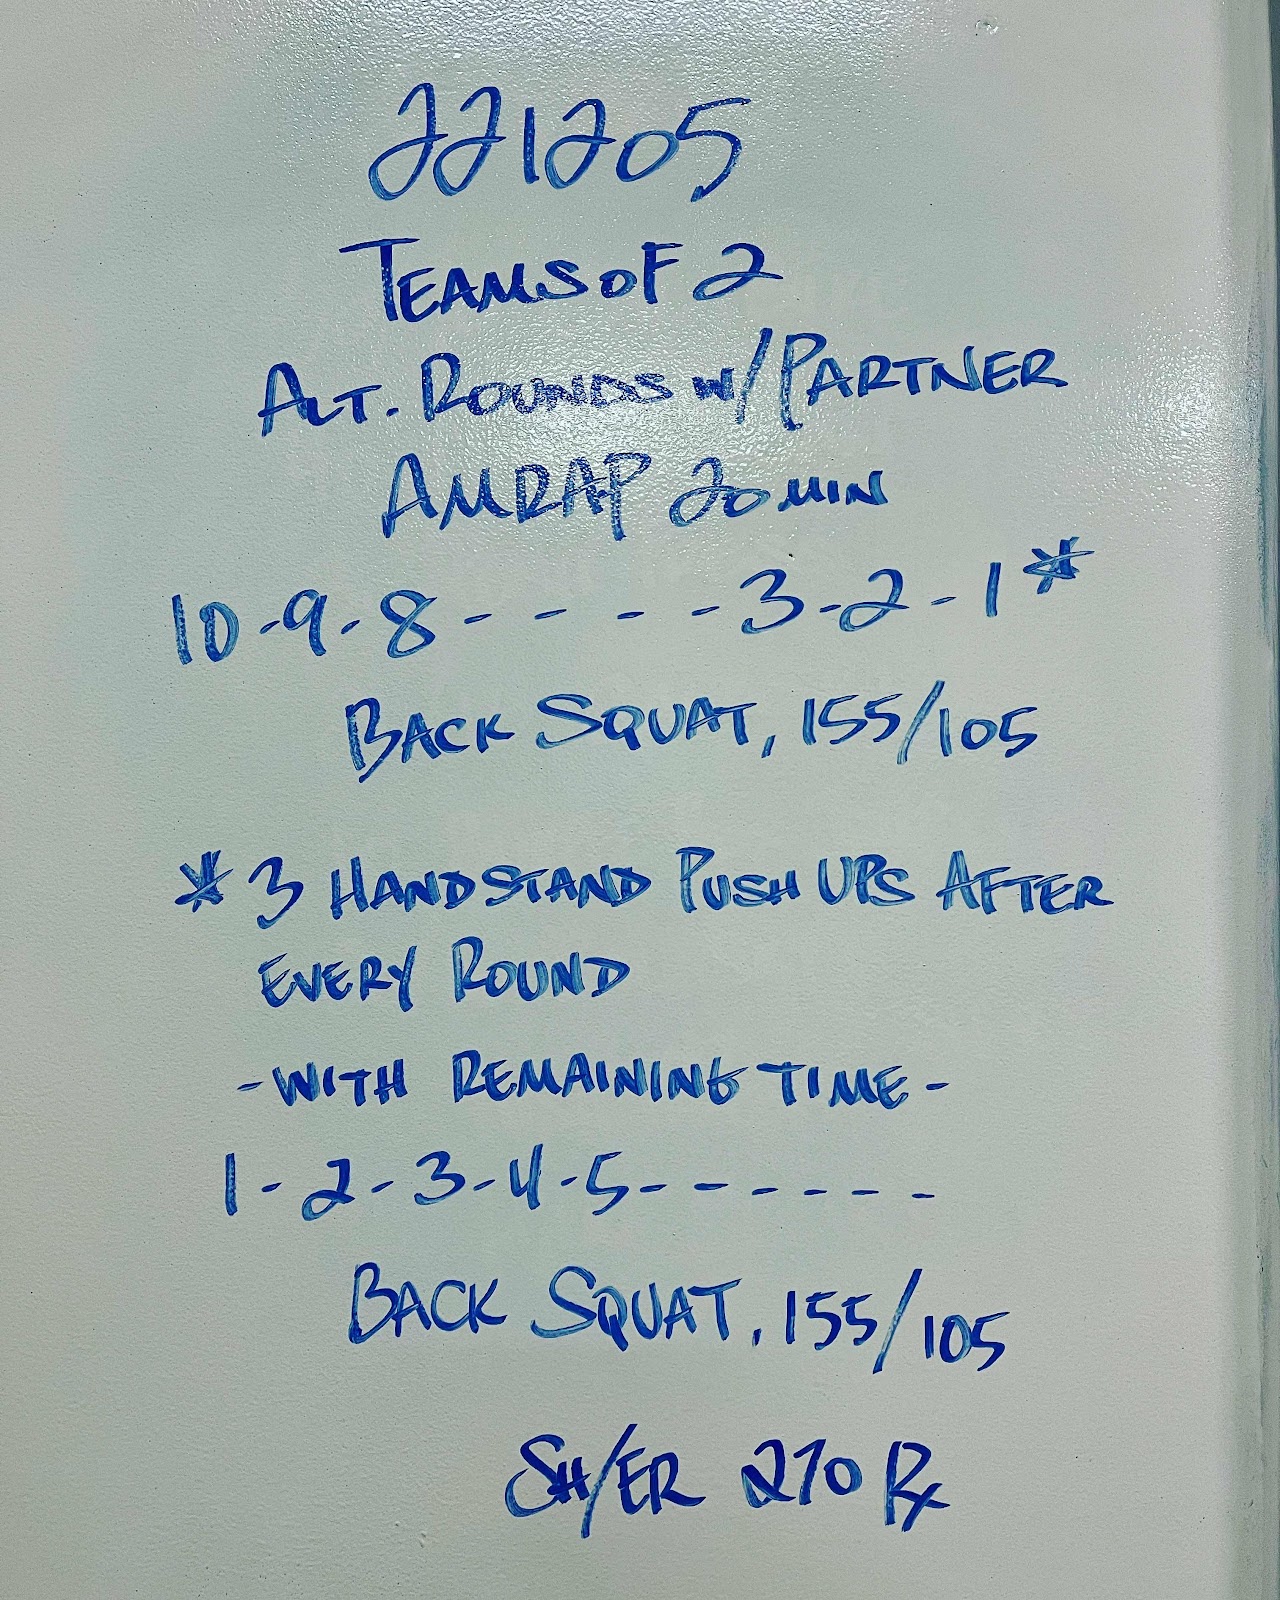 221205
TEAMS OF 2
ALT. ROUNDS W/ PARTNER
AMRAP 20 MIN
10-9-8-----3-2-1*
BACK SQUAT, 155/105
*3 HANDSTAND PUSH UPS AFTER
EVERY ROUND
-WITH REMAINING TIME-
1-2-3-4-5------
BACK SQUAT, 155/105
SH/ER 270 Rx